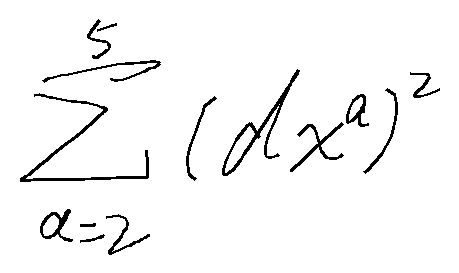 \sum_{a=2}^{5} (dx^{a})^{2}